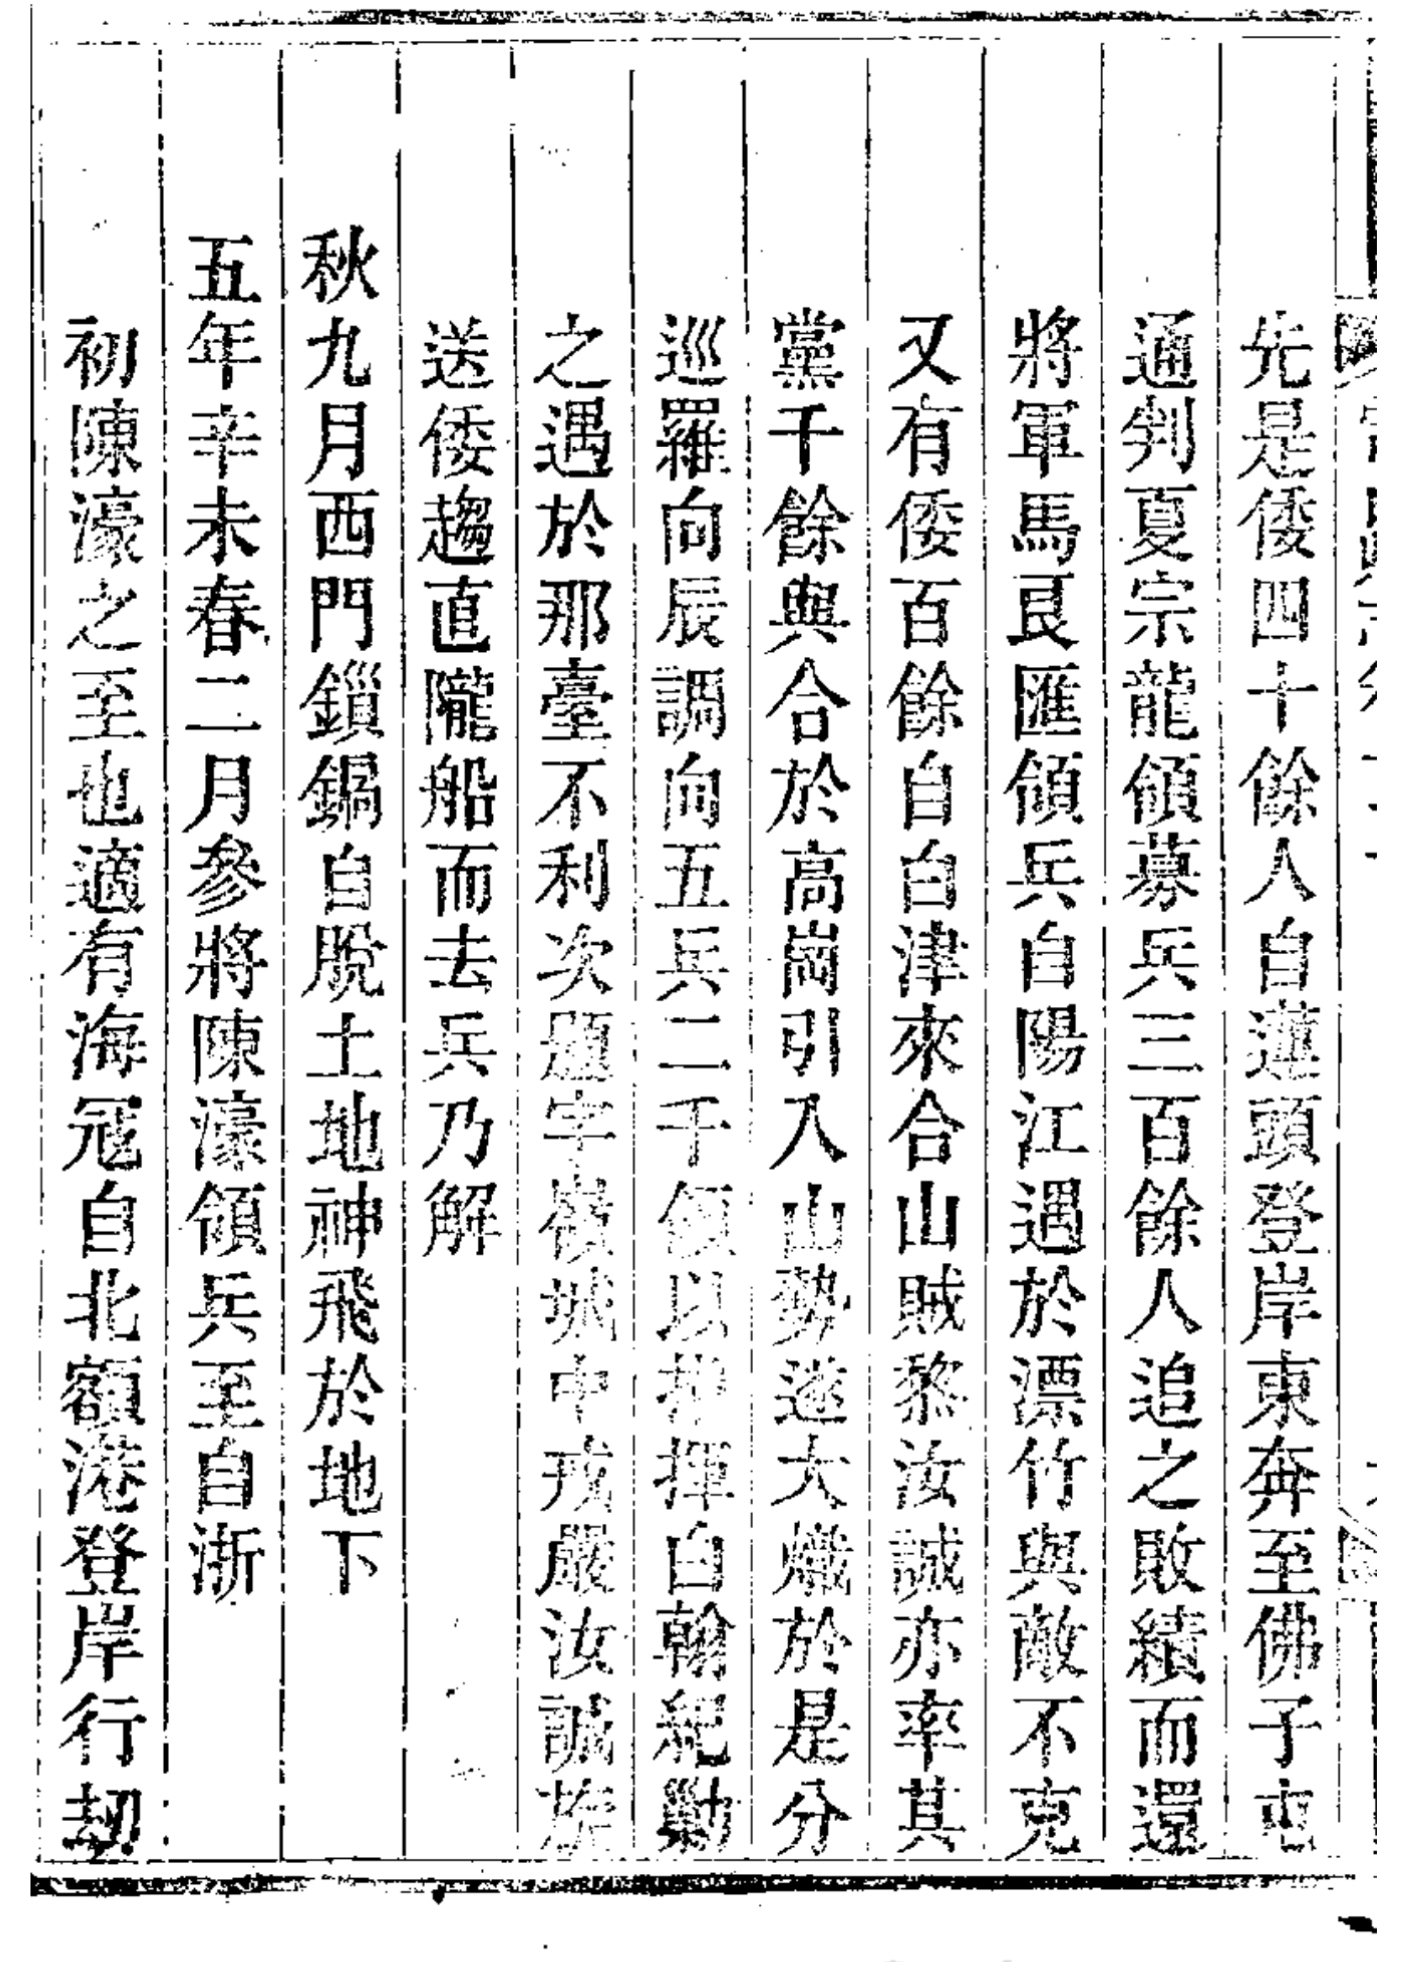 先是倭四十餘人自蓮頭登岸東奔至佛子屯
通判夏宗龍領募兵三百餘人追之敗績而還
將軍馬艮匯領兵自陽江遇於漂竹與敵不克
又有倭百餘自白津來合山賊黎汝誠亦率其
黨千餘與合於高崗引入山勢遂大熾於是分
巡羅向辰調向五兵二千領以指揮白翰紀勦
之遇於那臺不利次題字嶺城中戒嚴汝誠旋
送倭趨直隴船而去兵乃解
秋九月西門鎖鍋自脫土地神飛於地下
五年辛未春二月參將陳濠領兵至自浙
初陳濠之至也適有海寇自北額港登岸行劫